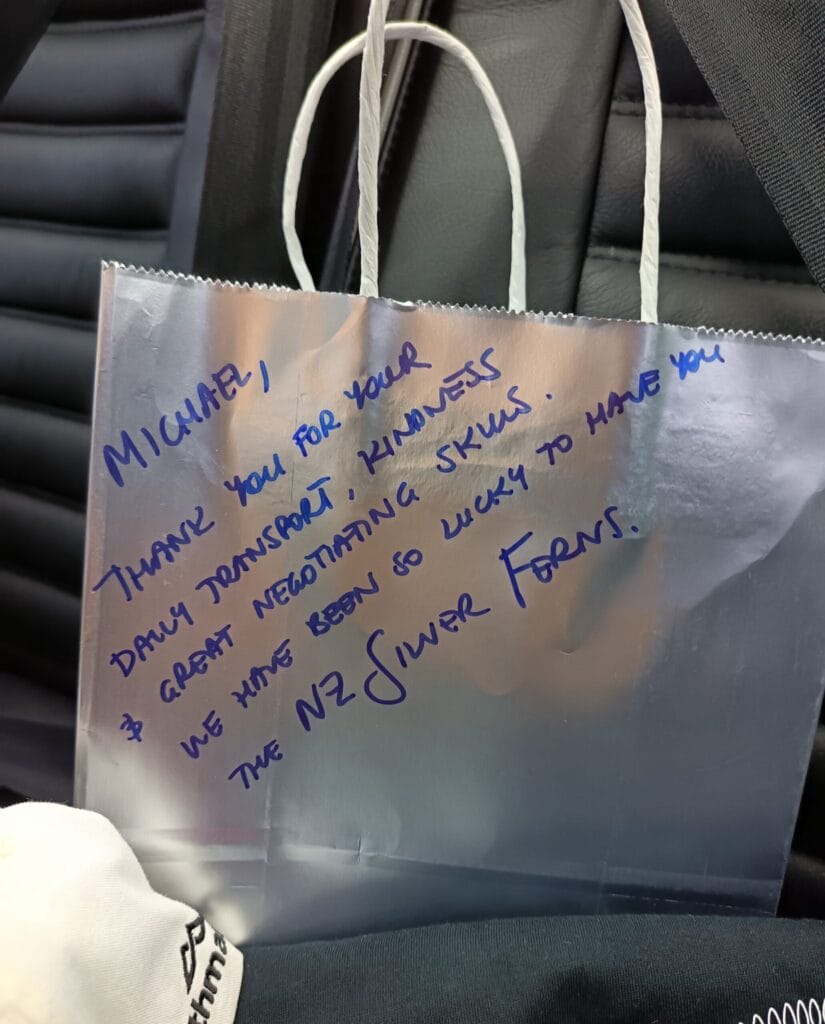 MICHAEL,
THANK YOU FOR YOUR
DAILY TRANSPORT, KINDNESS
& GREAT NEGOTIATING SKILLS.
WE HAVE BEEN SO LUCKY TO HAVE YOU
THE NZ SILVER FERNS.
thma